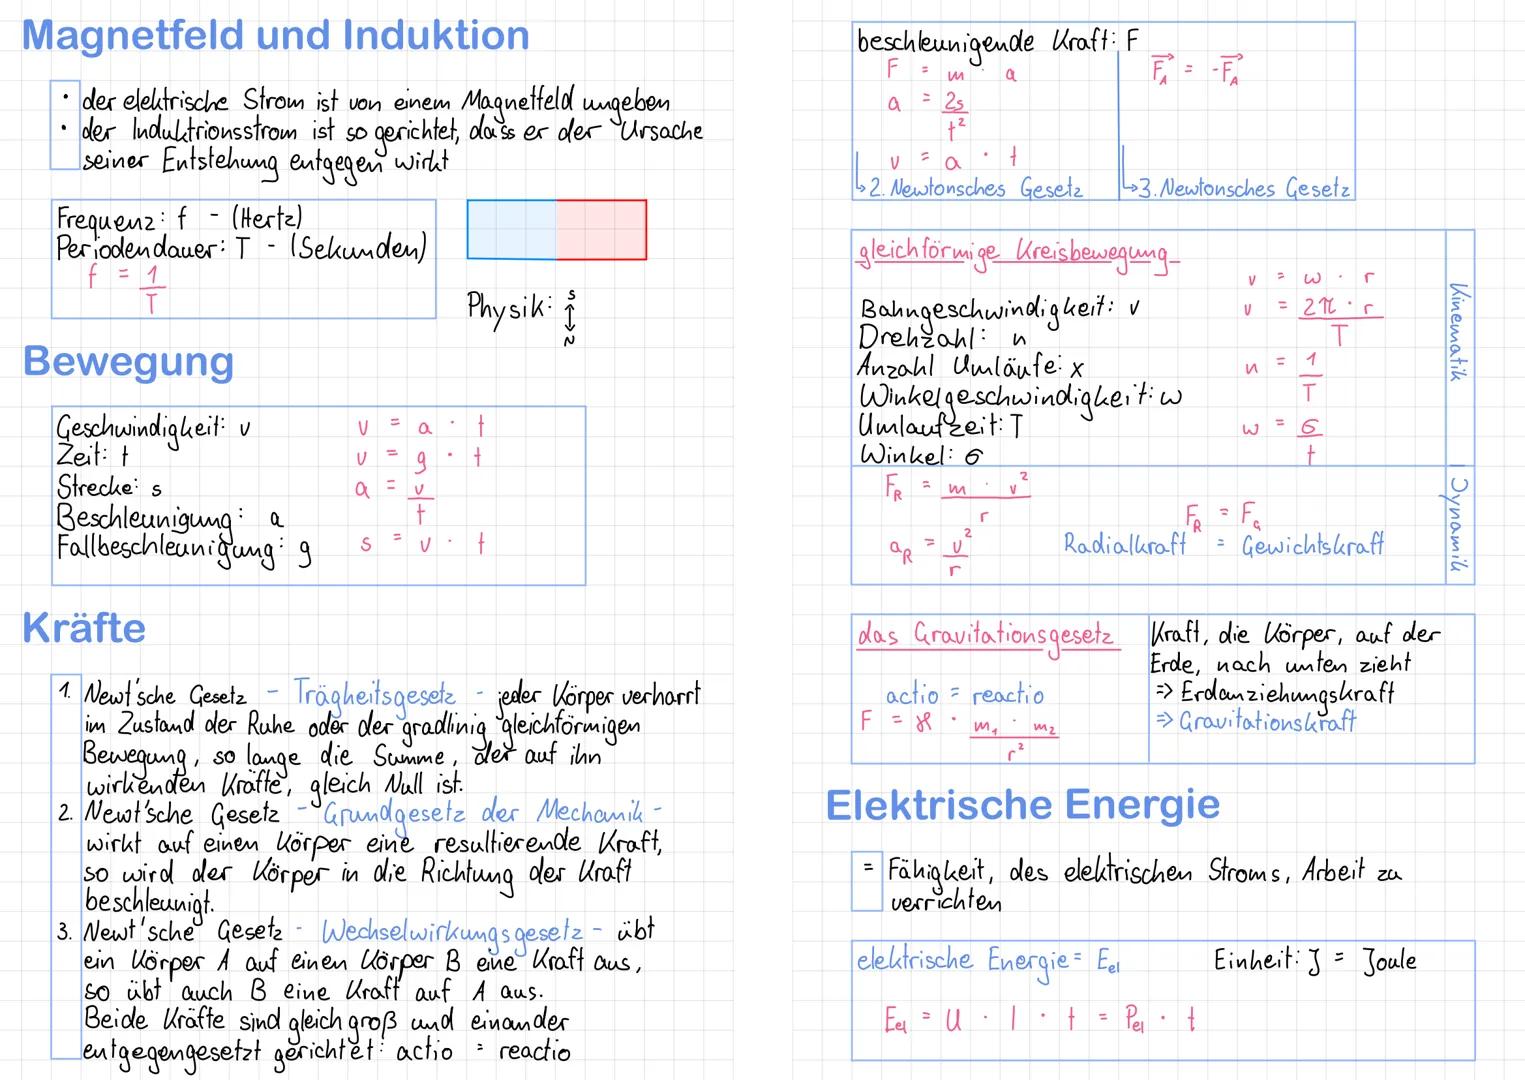 Magnetfeld und Induktion
• der elektrische Strom ist von einem Magnetfeld ungeben
• der Induktrionsstrom ist so gerichtet, dass er der Ursache
seiner Entstehung entgegen wirkt
Frequenz: f - (Hertz)
Periodendauer: T - (Sekunden)
f = 1/T
Physik: S ↕ N
Bewegung
Geschwindigkeit: v v = a · t
Zeit: t v = g · t
Strecke: s a = v/t
Beschleunigung: a
Fallbeschleunigung: g s = v · t
Kräfte
1. Newt'sche Gesetz - Trägheitsgesetz - jeder Körper verharrt
im Zustand der Ruhe oder der gradlinig gleichförmigen
Bewegung, so lange die Summe, der auf ihn
wirkenden Kräfte, gleich Null ist.
2. Newt'sche Gesetz - Grundgesetz der Mechanik -
wirkt auf einen Körper eine resultierende Kraft,
so wird der Körper in die Richtung der Kraft
beschleunigt.
3. Newt'sche Gesetz - Wechselwirkungsgesetz - übt
ein Körper A auf einen Körper B eine Kraft aus,
so übt auch B eine Kraft auf A aus.
Beide Kräfte sind gleich groß und einander
entgegengesetzt gerichtet: actio = reactio
beschleunigende Kraft: F
F = m · a
a = 2s/t²
v = a · t
↳ 2. Newtonsches Gesetz
F⃗_A = -F⃗_A
↳ 3. Newtonsches Gesetz
gleichförmige Kreisbewegung
v = w · r
Bahngeschwindigkeit: v v = 2π · r/T
Drehzahl: n
Anzahl Umläufe: x n = 1/T
Winkelgeschwindigkeit: w
Umlaufzeit: T w = σ/t
Winkel: σ
Kinematik
F_R = m · v²/r
a_R = v²/r
F_R = F_G
Radialkraft = Gewichtskraft
Dynamik
das Gravitationsgesetz
actio = reactio
F = γ · m₁ · m₂/r²
Kraft, die Körper, auf der
Erde, nach unten zieht
⇒ Erdanziehungskraft
⇒ Gravitationskraft
Elektrische Energie
= Fähigkeit, des elektrischen Stroms, Arbeit zu
verrichten
elektrische Energie = E_el Einheit: J = Joule
E_el = U · I · t = P_el · t